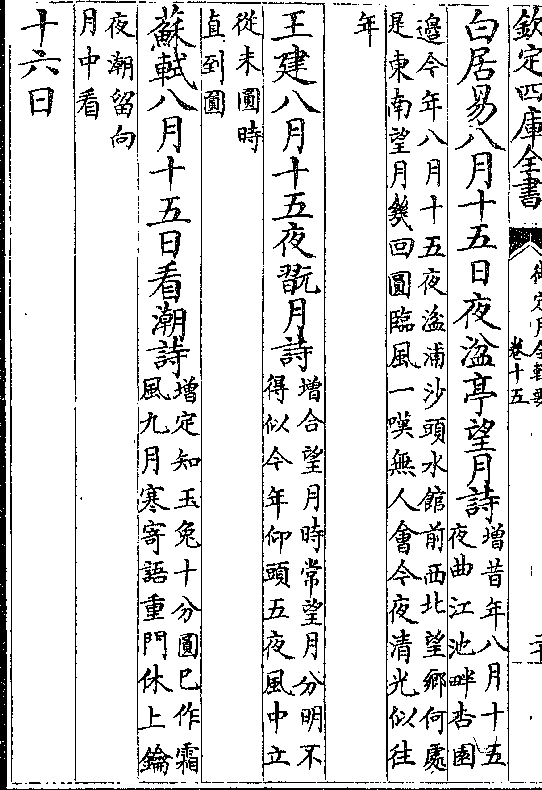 欽定四庫全書
御定月令輯要
卷十五
二十
白居易八月十五日夜湓亭望月詩
增昔年八月十五
夜曲江池畔杏園
邉今年八月十五夜湓浦沙頭水館前西北望鄉何處
是東南望月㡬回圓臨風一嘆無人會今夜清光似往
年
王建八月十五夜翫月詩
增合望月時常望月分明不
得似今年仰頭五夜風中立
從未圓時
直到圓
蘇軾八月十五日看潮詩
增定知玉兔十分圓巳作霜
風九月寒寄語重門休上鑰
夜潮留向
月中看
十六日